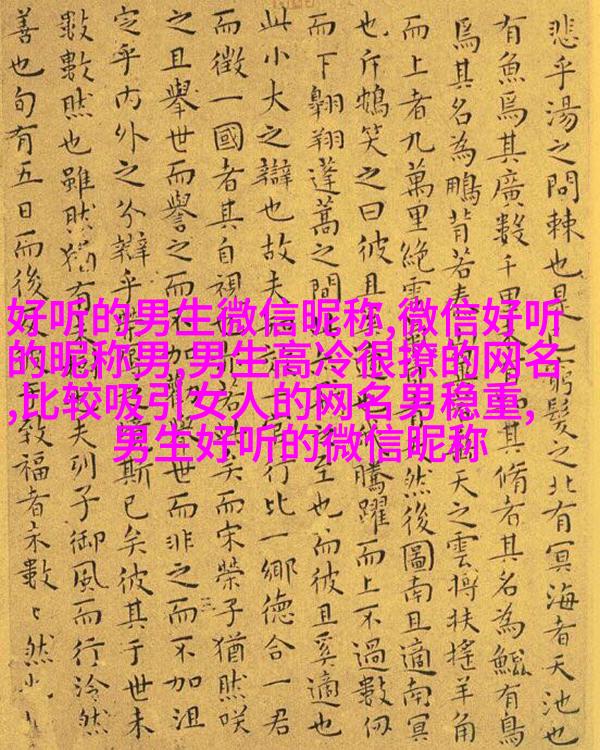 好听的男生微信昵称,微信好听
的昵称男,男生高冷很撩的网名
,比较吸引女人的网名男稳重,
男生好听的微信昵称
悲乎湯之問棘也是窮髮之北有冥海者天池也
有魚焉其廣數千里未有其脩者其名為鯤有鳥
焉其名為鵬背若泰天之雲摶扶搖羊角
而上者九萬里絕雲然後圖南且適南冥
也斥鴳笑之曰彼且騰躍而上不過數仞
而下翱翔蓬蒿之間此至也而彼且奚適也
此小大之辯也故夫行比一鄉德合一君
而徵一國者其自視也若矣而宋榮子猶然咲
之且舉世而譽之而不加勸舉世而非之而不加沮
定乎內外之分辯乎榮斯已矣彼其于世未
數數然也雖然猶有未夫列子御風而行泠然
善也旬有五日而後致福者未數〻然